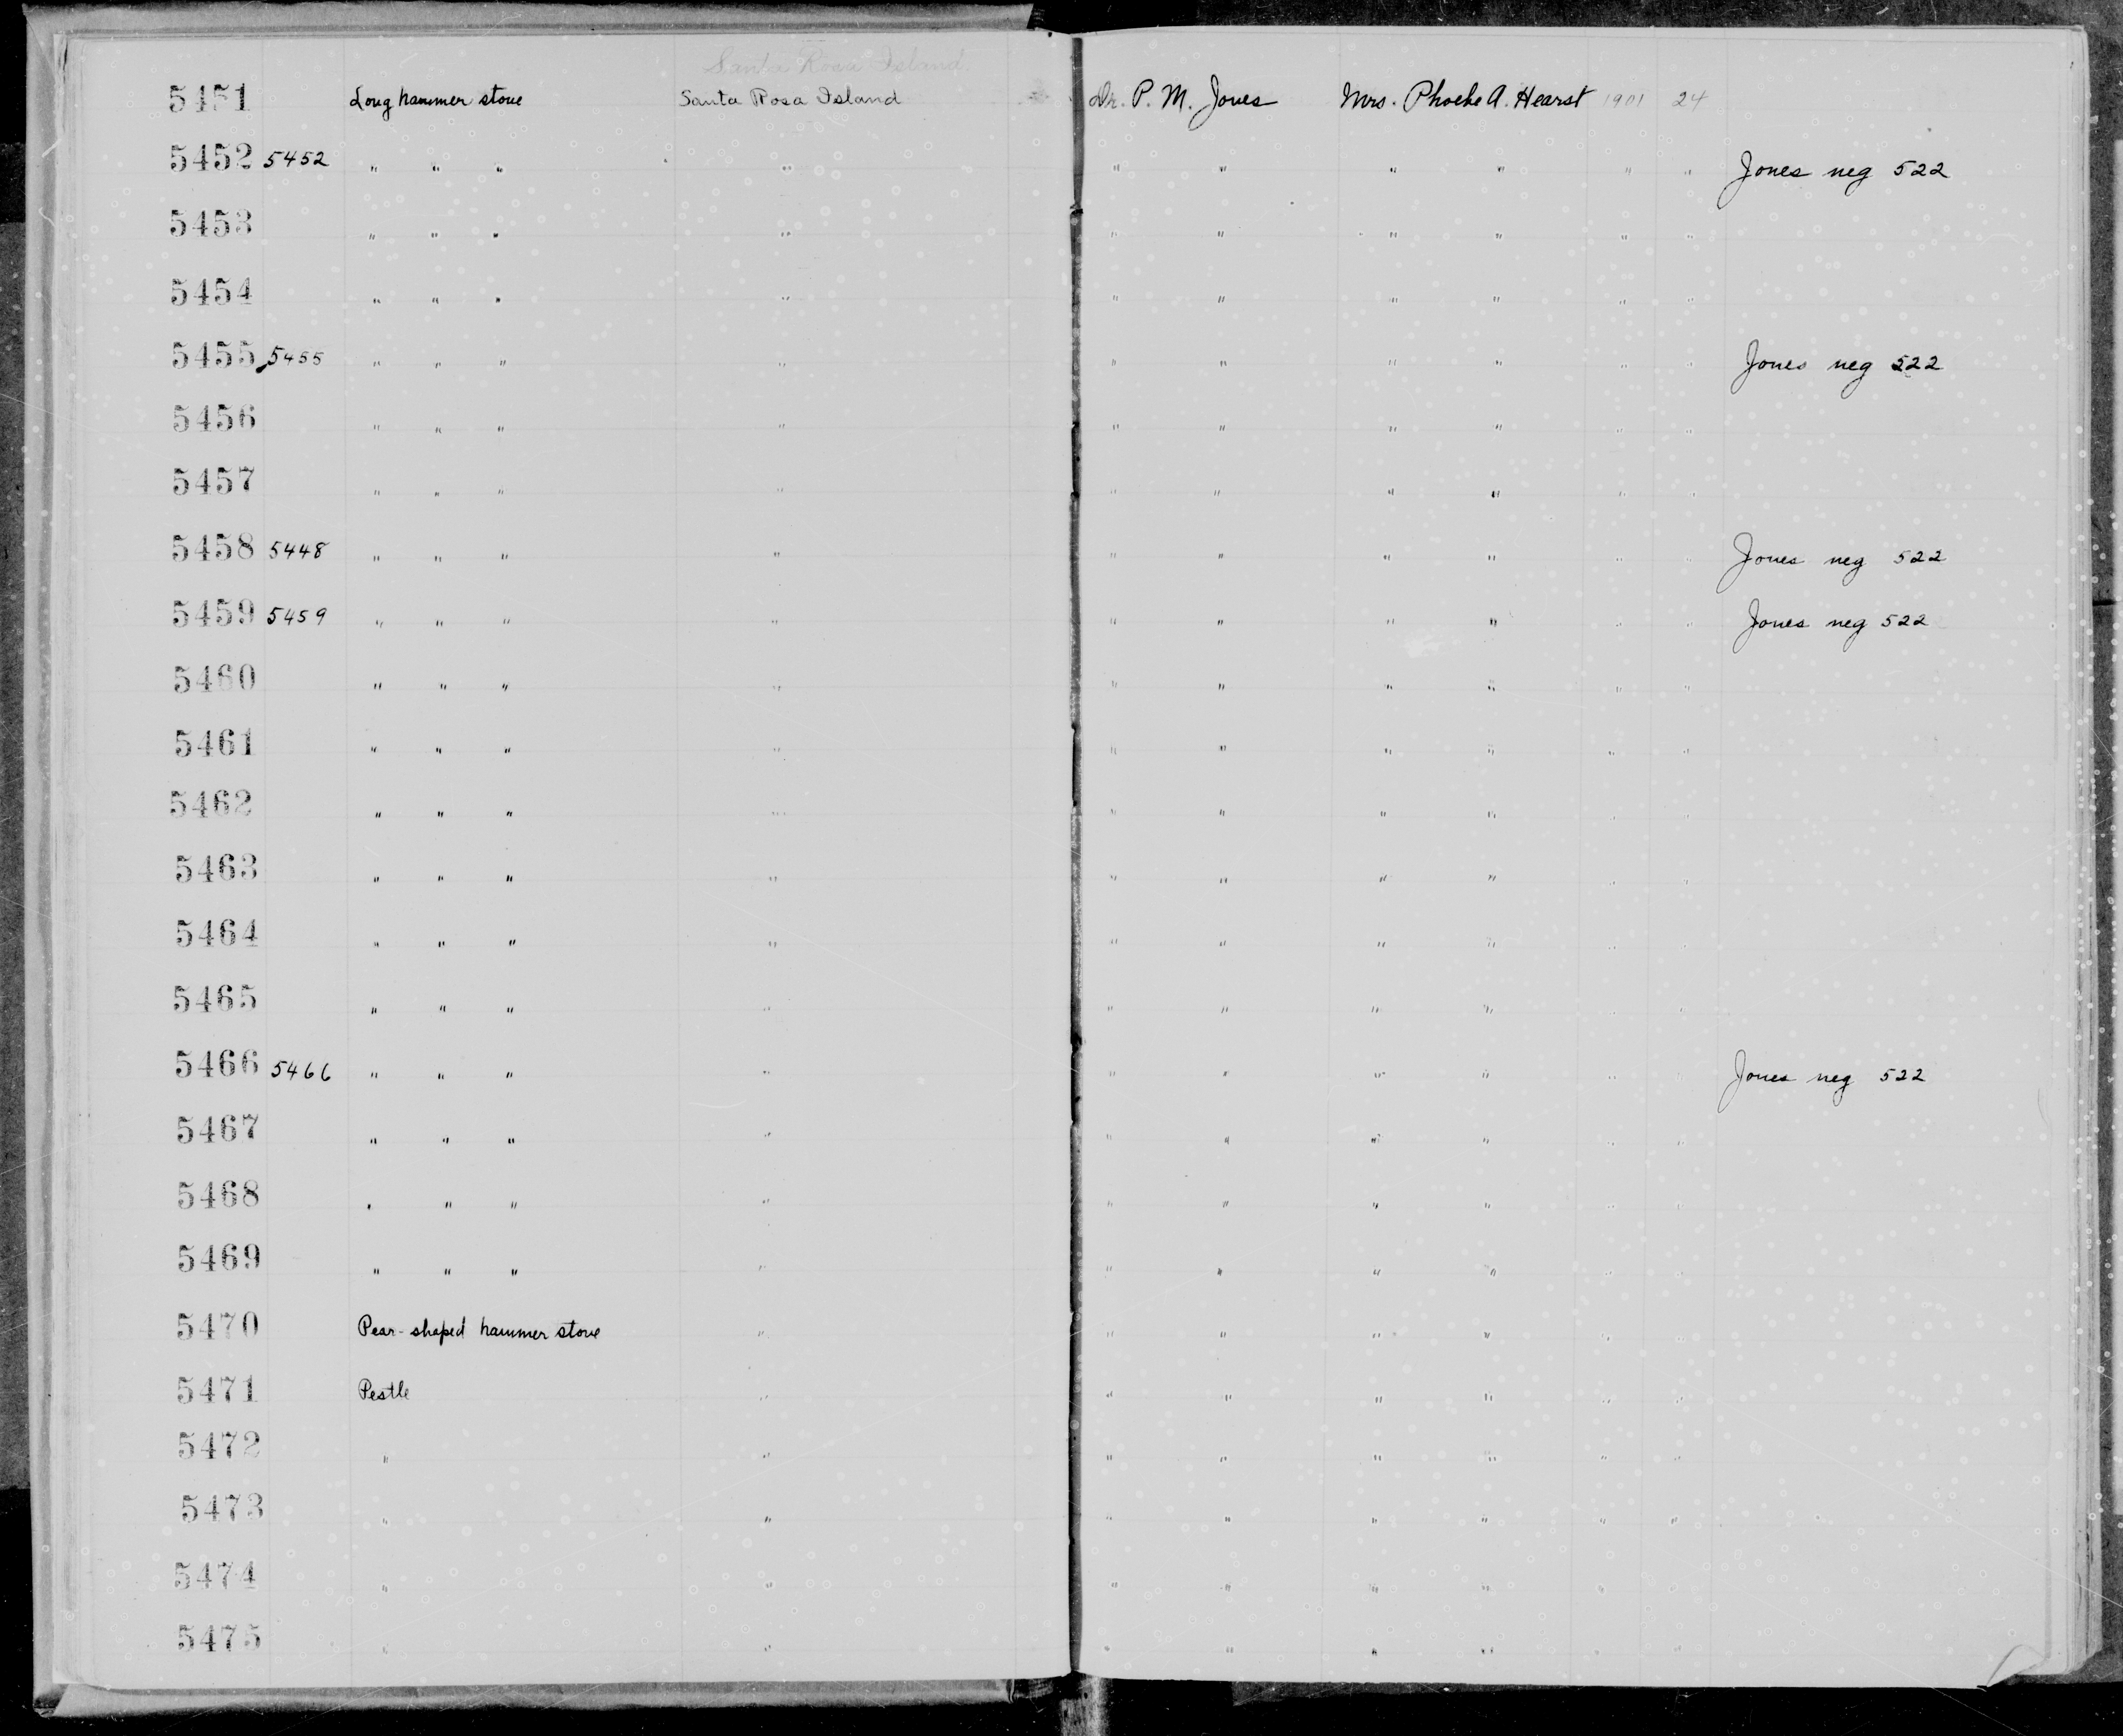 Santa Rosa Island.
5451 Long hammer stone Santa Rosa Island Dr. P. M. Jones Mrs. Phoebe A. Hearst 1901 24
5452 5452 " " " " " " " " " " Jones neg 522
5453 " " " " " " " " " "
5454 " " " " " " " " " "
5455 5455 " " " " " " " " " " Jones neg 522
5456 " " " " " " " " " "
5457 " " " " " " " " " "
5458 5448 " " " " " " " " " " Jones neg 522
5459 5459 " " " " " " " " " " Jones neg 522
5460 " " " " " " " " " "
5461 " " " " " " " " " "
5462 " " " " " " " " " "
5463 " " " " " " " " " "
5464 " " " " " " " " " "
5465 " " " " " " " " " "
5466 5466 " " " " " " " " " " Jones neg 522
5467 " " " " " " " " " "
5468 " " " " " " " " " "
5469 " " " " " " " " " "
5470 Pear-shaped hammer stone " " " " " " "
5471 Pestle " " " " " " "
5472 " " " " " " " "
5473 " " " " " " " "
5474 " " " " " " " "
5475 " " " " " " " "